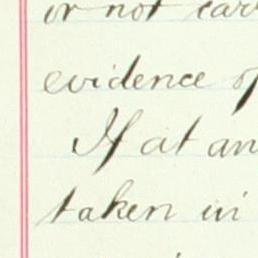 or not car
evidence of
If at an
taken in